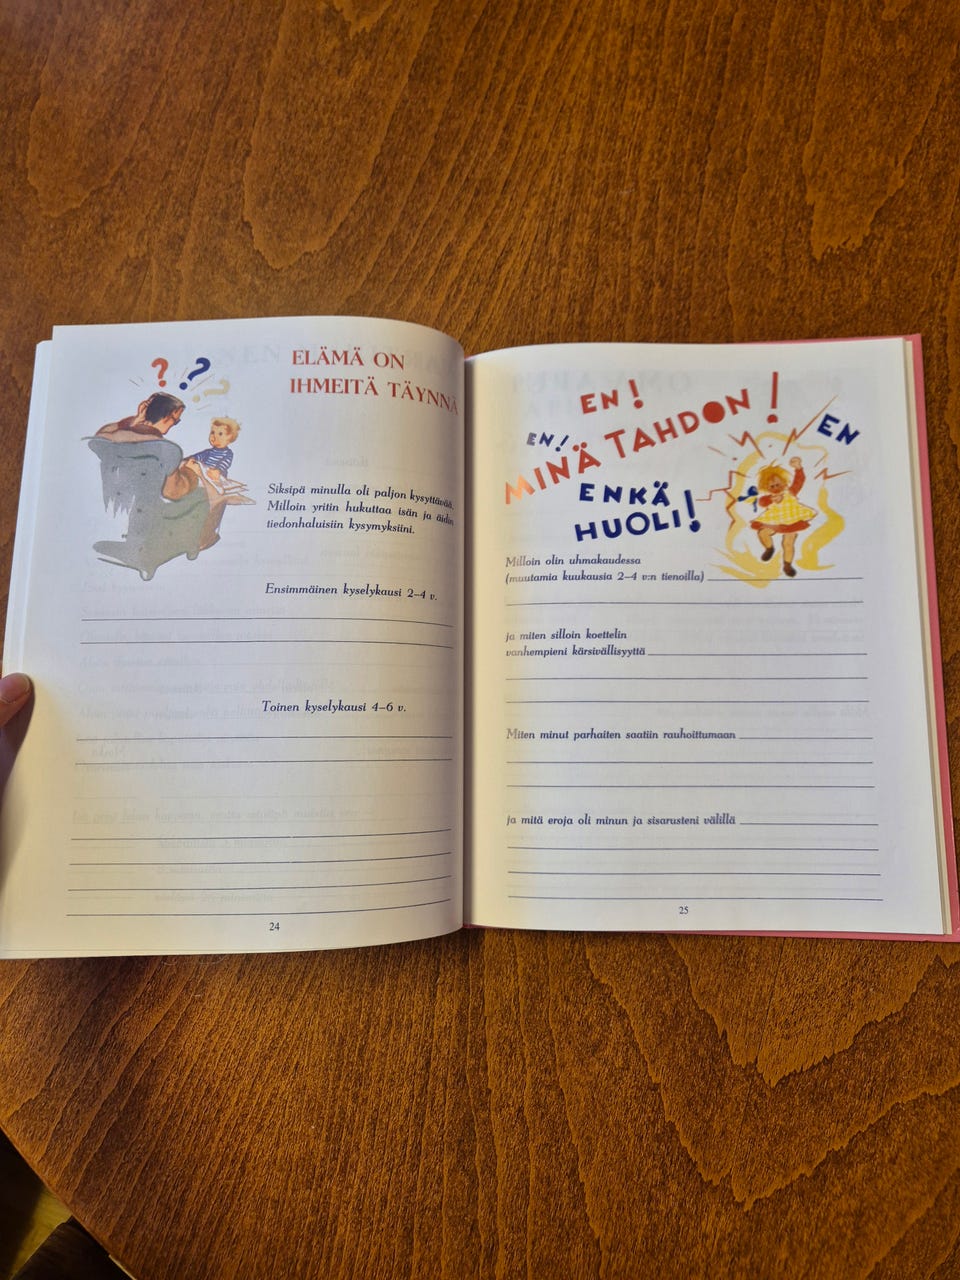 ? ? ?
ELÄMÄ ON
IHMEITÄ TÄYNNÄ
Siksipä minulla oli paljon kysyttävää.
Milloin yritin hukuttaa isän ja äidin
tiedonhaluisiin kysymyksiini.
Ensimmäinen kyselykausi 2–4 v.
Toinen kyselykausi 4–6 v.
24
EN!
EN!
MINÄ TAHDON!
EN
ENKÄ
HUOLI!
Milloin olin uhmakaudessa
(muutamia kuukausia 2–4 v:n tienoilla)
ja miten silloin koettelin
vanhempieni kärsivällisyyttä
Miten minut parhaiten saatiin rauhoittumaan
ja mitä eroja oli minun ja sisarusteni välillä
25